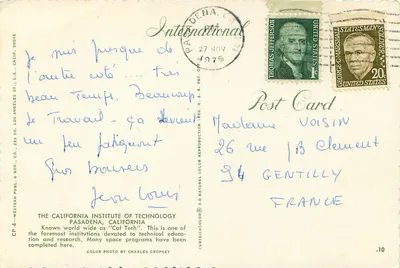 International
Post Card
PASADENA, CA
27 NOV
1975
THOMAS JEFFERSON
UNITED STATES
1¢
GEORGE C. MARSHALL
UNITED STATES
20
Je suis presque de
l'autre côté ... très
beau Temps. Beaucoup
de Travail - ça devient
un peu fatigant
Gros baisers
Jean Louis
Madame VOISIN
26 rue JB Clement
94 GENTILLY
FRANCE
THE CALIFORNIA INSTITUTE OF TECHNOLOGY
PASADENA, CALIFORNIA
Known world wide as "Cal Tech". This is one of
the foremost institutions devoted to technical educa-
tion and research. Many space programs have been
completed here.
COLOR PHOTO BY CHARLES CROPSEY
.10